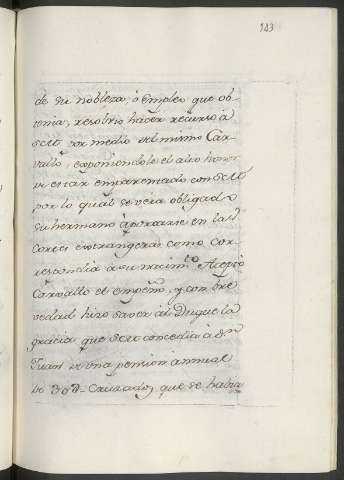 143
de su nobleza, ó Empleo que ob-
tenia, resolvio hacer recurso á
S.M. por medio del mismo Car-
vallo, exponiendole el alto honor
de estar emparentado con S.M.
por lo qual se veia obligado
su hermano á portarse en las
Cortes extrangeras como cor-
respondia á su nacim.to Acepto
Carvallo el empeño, y con bre
vedad hizo saver al Duque la
gracia que S.M. concedia á Dn
Juan de una pension annual
de 30d Cruzados, que se havia